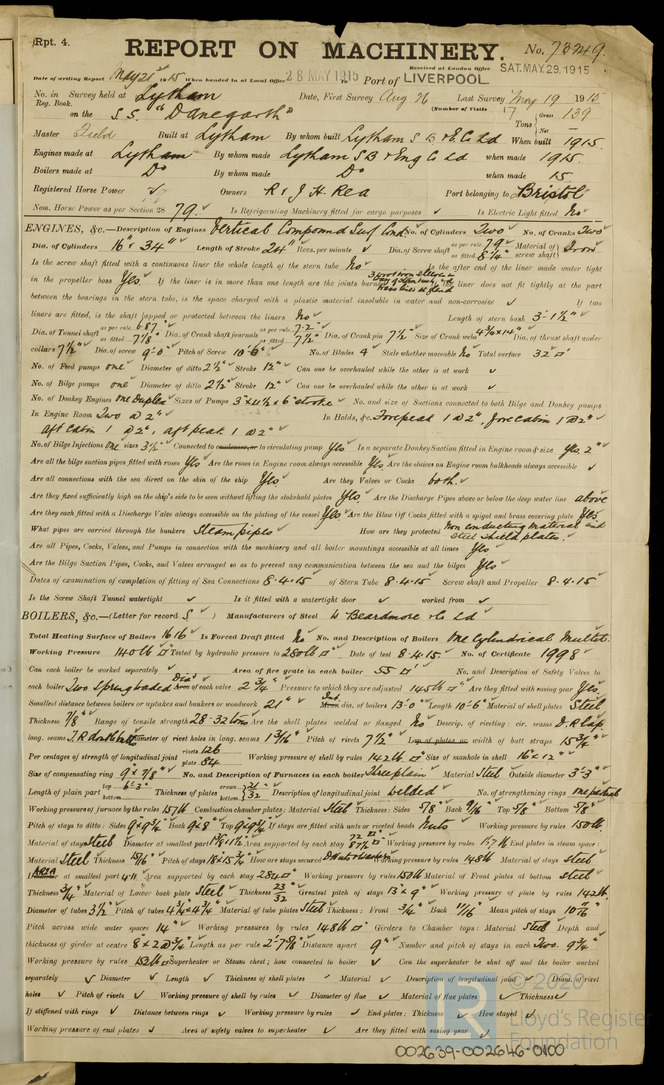 Rpt. 4.
REPORT ON MACHINERY.
No. 73249.
Received at London Office
SAT. MAY. 29. 1915
Date of writing Report May 28 1915 When handed in at Local Office 28 MAY 1915 Port of LIVERPOOL.
No. in Survey held at Lytham Date, First Survey Aug 26 Last Survey May 19 1915
Reg. Book. (Number of Visits 17
on the S.S. "Danegarth" Tons Gross 139 Net -
Master Field Built at Lytham By whom built Lytham S B & E Co Ld When built 1915.
Engines made at Lytham By whom made Lytham S B & Eng Co Ld when made 1915
Boilers made at Do By whom made Do when made 15
Registered Horse Power ✓ Owners R & J H. Rea Port belonging to Bristol
Nom. Horse Power as per Section 28 79. Is Refrigerating Machinery fitted for cargo purposes ✓ Is Electric Light fitted No
ENGINES, &c.—Description of Engines Vertical Compound Surf Cond No. of Cylinders Two No. of Cranks Two
Dia. of Cylinders 16" & 34" Length of Stroke 24" Revs. per minute ✓ Dia. of Screw shaft as per rule 7.9 as fitted 8 1/4" Material of screw shaft Iron
Is the screw shaft fitted with a continuous liner the whole length of the stern tube No Is the after end of the liner made water tight
in the propeller boss Yes If the liner is in more than one length are the joints burned If the liner does not fit tightly at the part
between the bearings in the stern tube, is the space charged with a plastic material insoluble in water and non-corrosive ✓ If two
liners are fitted, is the shaft lapped or protected between the liners No Length of stern bush 3'-1 1/2"
Dia. of Tunnel shaft as per rule 6.87 as fitted 7 1/8" Dia. of Crank shaft journals as per rule 7.2 as fitted 7 1/2" Dia. of Crank pin 7 1/2" Size of Crank webs 4 3/4 x 14" Dia. of thrust shaft under
collars 7 1/2" Dia. of screw 9'-0 Pitch of Screw 10'-6" No. of Blades 4 State whether moveable No Total surface 32 □'
No. of Feed pumps one Diameter of ditto 2 1/2" Stroke 12" Can one be overhauled while the other is at work ✓
No. of Bilge pumps one Diameter of ditto 2 1/2" Stroke 12" Can one be overhauled while the other is at work ✓
No. of Donkey Engines one Duplex Sizes of Pumps 3" x 4 1/2 x 6" stroke No. and size of Suctions connected to both Bilge and Donkey pumps
In Engine Room Two @ 2" In Holds, &c. Forepeak 1 @ 2", fore cabin 1 @ 2"
aft cabin 1 @ 2", aft peak 1 @ 2"
No. of Bilge Injections one sizes 3 1/2" Connected to condenser, or to circulating pump Yes Is a separate Donkey Suction fitted in Engine room & size Yes, 2"
Are all the bilge suction pipes fitted with roses Yes Are the roses in Engine room always accessible Yes Are the sluices on Engine room bulkheads always accessible ✓
Are all connections with the sea direct on the skin of the ship Yes Are they Valves or Cocks both.
Are they fixed sufficiently high on the ship's side to be seen without lifting the stokehold plates Yes Are the Discharge Pipes above or below the deep water line above
Are they each fitted with a Discharge Valve always accessible on the plating of the vessel Yes Are the Blow Off Cocks fitted with a spigot and brass covering plate Yes
What pipes are carried through the bunkers Steam pipes How are they protected Non conducting material and
steel shield plates.
Are all Pipes, Cocks, Valves, and Pumps in connection with the machinery and all boiler mountings accessible at all times Yes
Are the Bilge Suction Pipes, Cocks, and Valves arranged so as to prevent any communication between the sea and the bilges Yes
Dates of examination of completion of fitting of Sea Connections 8.4.15 of Stern Tube 8.4.15 Screw shaft and Propeller 8.4.15
Is the Screw Shaft Tunnel watertight ✓ Is it fitted with a watertight door ✓ worked from ✓
BOILERS, &c.—(Letter for record S) Manufacturers of Steel W Beardmore & Co Ld
Total Heating Surface of Boilers 1616 Is Forced Draft fitted No No. and Description of Boilers One Cylindrical Multit.
Working Pressure 140 lb □" Tested by hydraulic pressure to 280 lb □" Date of test 8.4.15 No. of Certificate 1998
Can each boiler be worked separately ✓ Area of fire grate in each boiler 55 □' No. and Description of Safety Valves to
each boiler Two Spring loaded Dia of each valve 2 3/4" Pressure to which they are adjusted 145 lb □" Are they fitted with easing gear Yes
Smallest distance between boilers or uptakes and bunkers or woodwork 21" Int dia. of boilers 13'-0" Length 10'-6" Material of shell plates Steel
Thickness 7/8" Range of tensile strength 28-32 tons Are the shell plates welded or flanged No Descrip. of riveting: cir. seams D.R. Lap.
long. seams T R double butt Diameter of rivet holes in long. seams 1 3/16" Pitch of rivets 7 1/2" Lap of plates or width of butt straps 15 3/4"
Per centages of strength of longitudinal joint rivets 126 plate 84 Working pressure of shell by rules 142 lb □" Size of manhole in shell 16" x 12"
Size of compensating ring 9" x 7/8" No. and Description of Furnaces in each boiler Three plain Material Steel Outside diameter 3'-3"
Length of plain part top 6'-3" bottom Thickness of plates crown 21/32 bottom Description of longitudinal joint welded No. of strengthening rings
Working pressure of furnace by the rules 157 lb Combustion chamber plates: Material Steel Thickness: Sides 5/8" Back 9/16" Top 5/8" Bottom 5/8"
Pitch of stays to ditto: Sides 9" x 9 3/4" Back 9" x 8" Top 9" x 9 3/4" If stays are fitted with nuts or riveted heads Nuts Working pressure by rules 150 lb
Material of stays Steel Diameter at smallest part 1 3/8" 1 1/2" Area supported by each stay Working pressure by rules 157 lb End plates in steam space:
Material Steel Thickness 15/16" Pitch of stays 18 x 15 3/4" How are stays secured D nuts & washers Working pressure by rules 148 lb Material of stays Steel
AREA at smallest part 4.11 Area supported by each stay 284 □" Working pressure by rules 150 lb Material of Front plates at bottom Steel
Thickness 3/4" Material of Lower back plate Steel Thickness 23/32 Greatest pitch of stays 13 x 9" Working pressure of plate by rules 142 lb.
Diameter of tubes 3 1/2" Pitch of tubes 4 3/4 x 4 3/4" Material of tube plates Steel Thickness: Front 3/4" Back 11/16" Mean pitch of stays 10 7/16"
Pitch across wide water spaces 14" Working pressures by rules 148 lb □" Girders to Chamber tops: Material Steel Depth and
thickness of girder at centre 8 x 2 @ 3/4" Length as per rule 2'-7 7/8" Distance apart 9" Number and pitch of stays in each Two. 9 3/4"
Working pressure by rules 152 lb □" Superheater or Steam chest; how connected to boiler ✓ Can the superheater be shut off and the boiler worked
separately ✓ Diameter ✓ Length ✓ Thickness of shell plates ✓ Material ✓ Description of longitudinal joint ✓ Diam. of rivet
holes ✓ Pitch of rivets ✓ Working pressure of shell by rules ✓ Diameter of flue ✓ Material of flue plates ✓ Thickness ✓
If stiffened with rings ✓ Distance between rings ✓ Working pressure by rules ✓ End plates: Thickness ✓ How stayed ✓
Working pressure of end plates ✓ Area of safety valves to superheater ✓ Are they fitted with easing gear ✓
© 2020
LR
Lloyd's Register
Foundation
002639-002646-0100